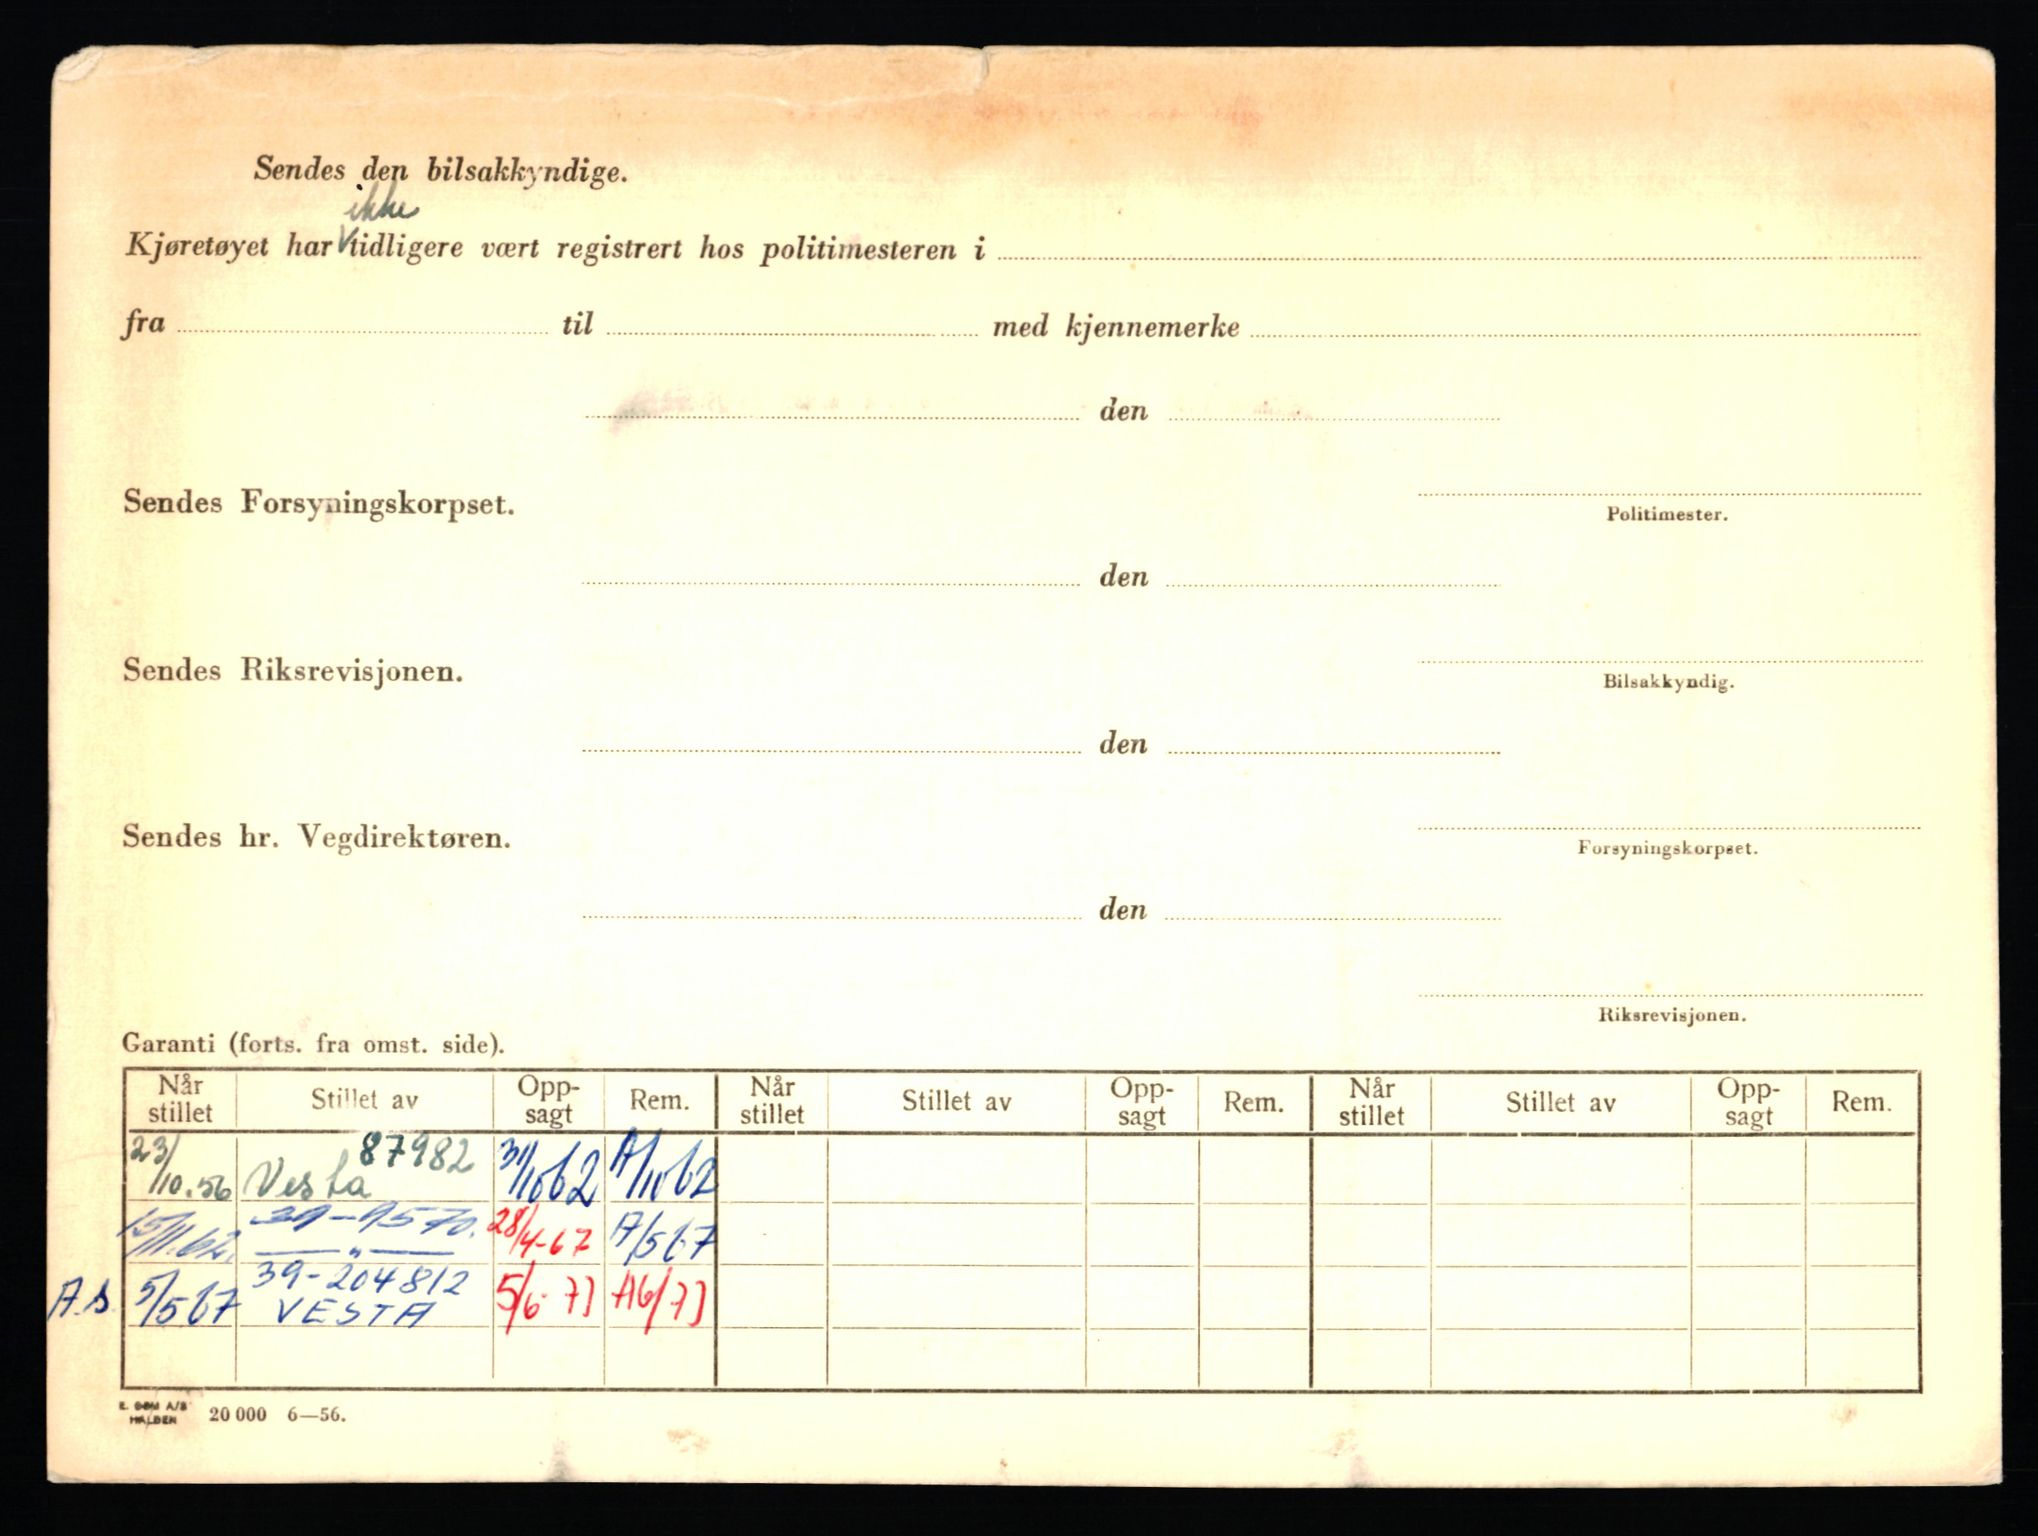 Sendes den bilsakkyndige.
ikke
Kjøretøyet har V tidligere vært registrert hos politimesteren i
fra til med kjennemerke
den
Sendes Forsyningskorpset.
Politimester.
den
Sendes Riksrevisjonen.
Bilsakkyndig.
den
Sendes hr. Vegdirektøren.
Forsyningskorpset.
den
Riksrevisjonen.
Garanti (forts. fra omst. side).
Når stillet Stillet av Opp-sagt Rem. Når stillet Stillet av Opp-sagt Rem. Når stillet Stillet av Opp-sagt Rem.
23/10.56 87982 Vesta 31/10 62 A/10 62
15/11.62. 39-9570. — " — 28/4-67 A/5 67
A.s. 5/5 67 39-204812 VESTA 5/6-73 A6/73
E. BØM A/S
HALDEN 20 000 6—56.